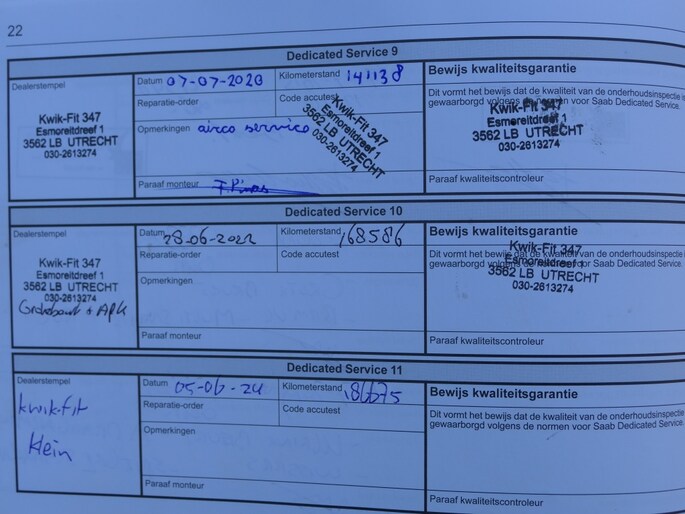 22
Dedicated Service 9
Dealerstempel
Kwik-Fit 347
Esmoreitdreef 1
3562 LB UTRECHT
030-2613274
Datum 07-07-2020
Kilometerstand 141138
Reparatie-order
Code accutest
Opmerkingen airco service
Kwik-Fit 347
Esmoreitdreef 1
3562 LB UTRECHT
030-2613274
Paraaf monteur
Bewijs kwaliteitsgarantie
Dit vormt het bewijs dat de kwaliteit van de onderhoudsinspectie is
gewaarborgd volgens de normen voor Saab Dedicated Service.
Kwik-Fit 347
Esmoreitdreef 1
3562 LB UTRECHT
030-2613274
Paraaf kwaliteitscontroleur
Dedicated Service 10
Dealerstempel
Kwik-Fit 347
Esmoreitdreef 1
3562 LB UTRECHT
030-2613274
+ APK
Datum 28-06-2022
Kilometerstand 168586
Reparatie-order
Code accutest
Opmerkingen
Paraaf monteur
Bewijs kwaliteitsgarantie
Dit vormt het bewijs dat de kwaliteit van de onderhoudsinspectie is
gewaarborgd volgens de normen voor Saab Dedicated Service.
Kwik-Fit 347
Esmoreitdreef 1
3562 LB UTRECHT
030-2613274
Paraaf kwaliteitscontroleur
Dedicated Service 11
Dealerstempel
kwik-fit
klein
Datum 05-06-24
Kilometerstand 186675
Reparatie-order
Code accutest
Opmerkingen
Paraaf monteur
Bewijs kwaliteitsgarantie
Dit vormt het bewijs dat de kwaliteit van de onderhoudsinspectie
gewaarborgd volgens de normen voor Saab Dedicated Service.
Paraaf kwaliteitscontroleur